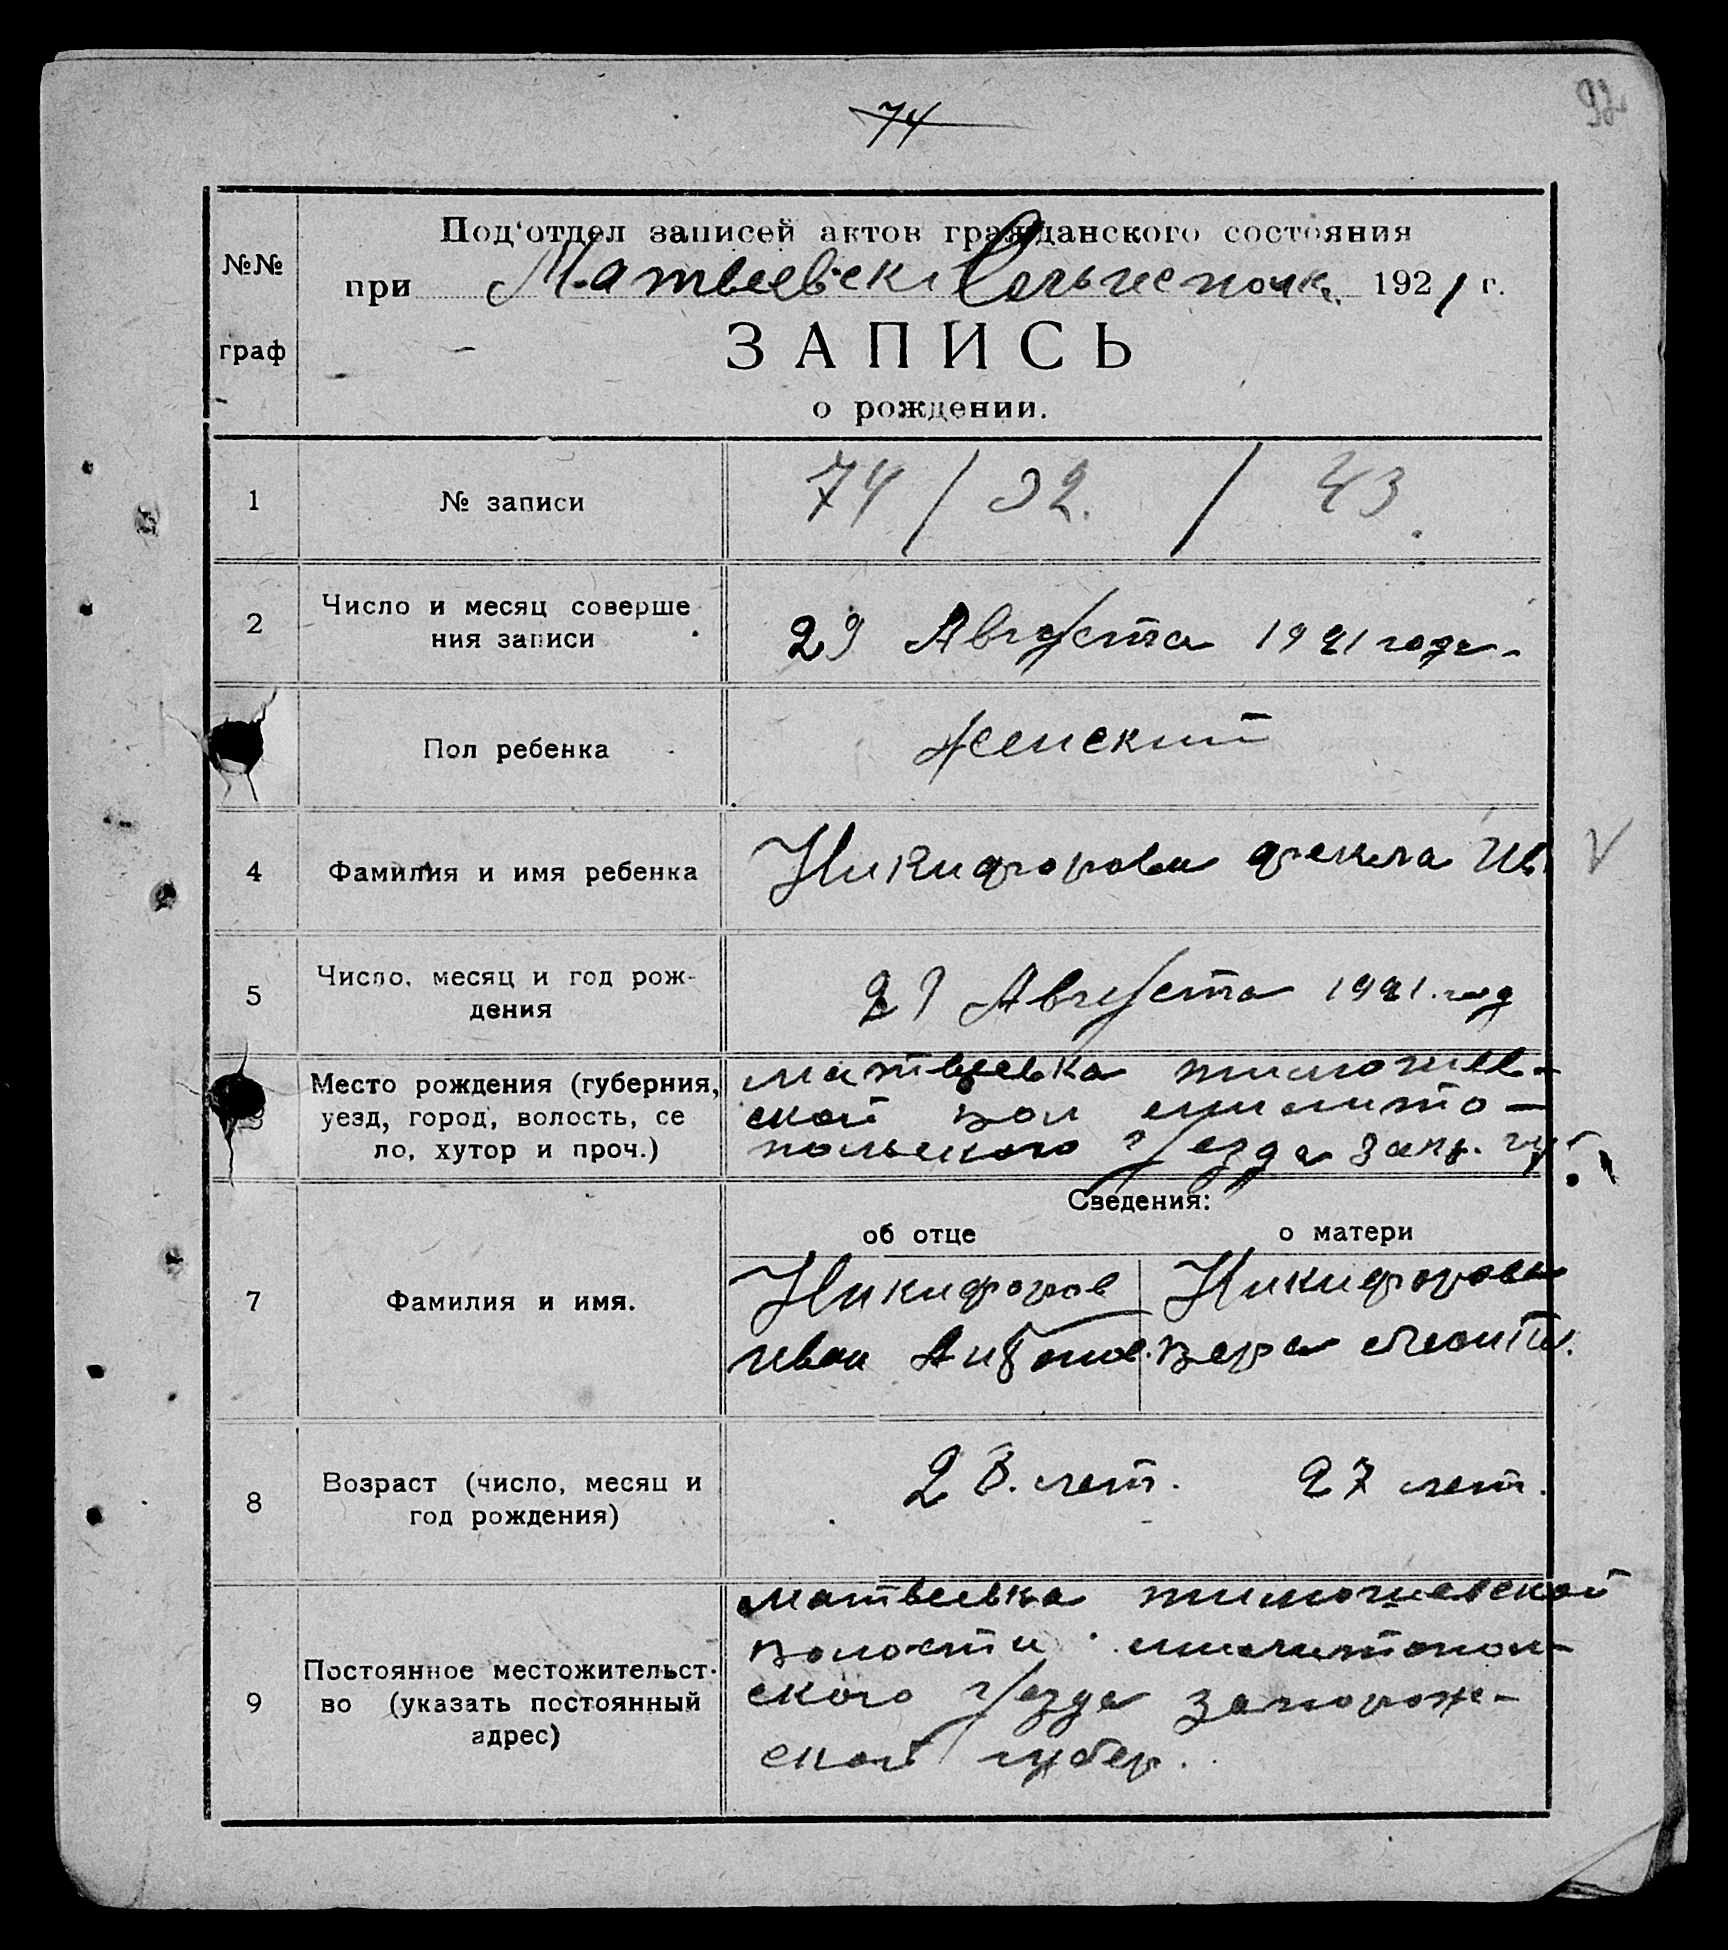 92
74
№№
граф
Под‘отдел записей актов гражданского состояния
при Матвеевск. Сельисполк. 1921 г.
ЗАПИСЬ
о рождении.
1 № записи 74 / 92. / 43.
2 Число и месяц соверше
ния записи
29 Августа 1921 года
Пол ребенка Женский
4 Фамилия и имя ребенка Никифорова Фекла Ив. V
5 Число, месяц и год рож-
дения
21 Августа 1921. год
Место рождения (губерния,
уезд, город, волость, се
ло, хутор и проч.)
Матвеевка Тимошев-
ской вол Мелито-
польского уезда Зап. губ.
Сведения:
об отце о матери
7 Фамилия и имя.
Никифоров Никифорова
Иван Вера
8 Возраст (число, месяц и
год рождения)
28. лет. 27 лет.
9 Постоянное местожительст-
во (указать постоянный
адрес)
Матвеевка Тимошевской
Волости Мелитопол-
ского уезда Запорож-
ской губер.